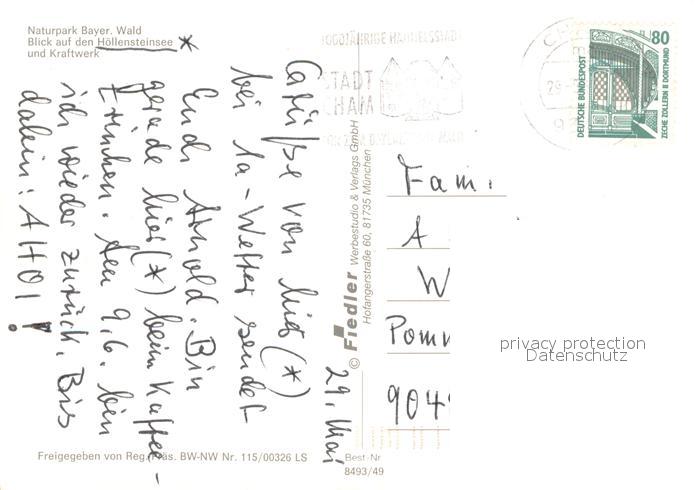 Naturpark Bayer. Wald
Blick auf den Höllensteinsee *
und Kraftwerk
29. Mai
Grüße von hier (*)
bei 1a-Wetter sendet
Euch Arnold. Bin
gerade hier (*) beim Kaffee-
trinken. Am 9.6. bin
ich wieder zurück. Bis
dahin: AHOI!
Freigegeben von Reg. Präs. BW-NW Nr. 115/00326 LS
© Fiedler Werbestudio & Verlags GmbH
Hofangerstraße 60, 81735 München
Best-Nr
8493/49
1000JÄHRIGE HANDELSSTADT
STADT
CHAM
80
DEUTSCHE BUNDESPOST
ZECHE ZOLLERN II DORTMUND
Fam.
A
W
Pomm
9049
privacy protection
Datenschutz